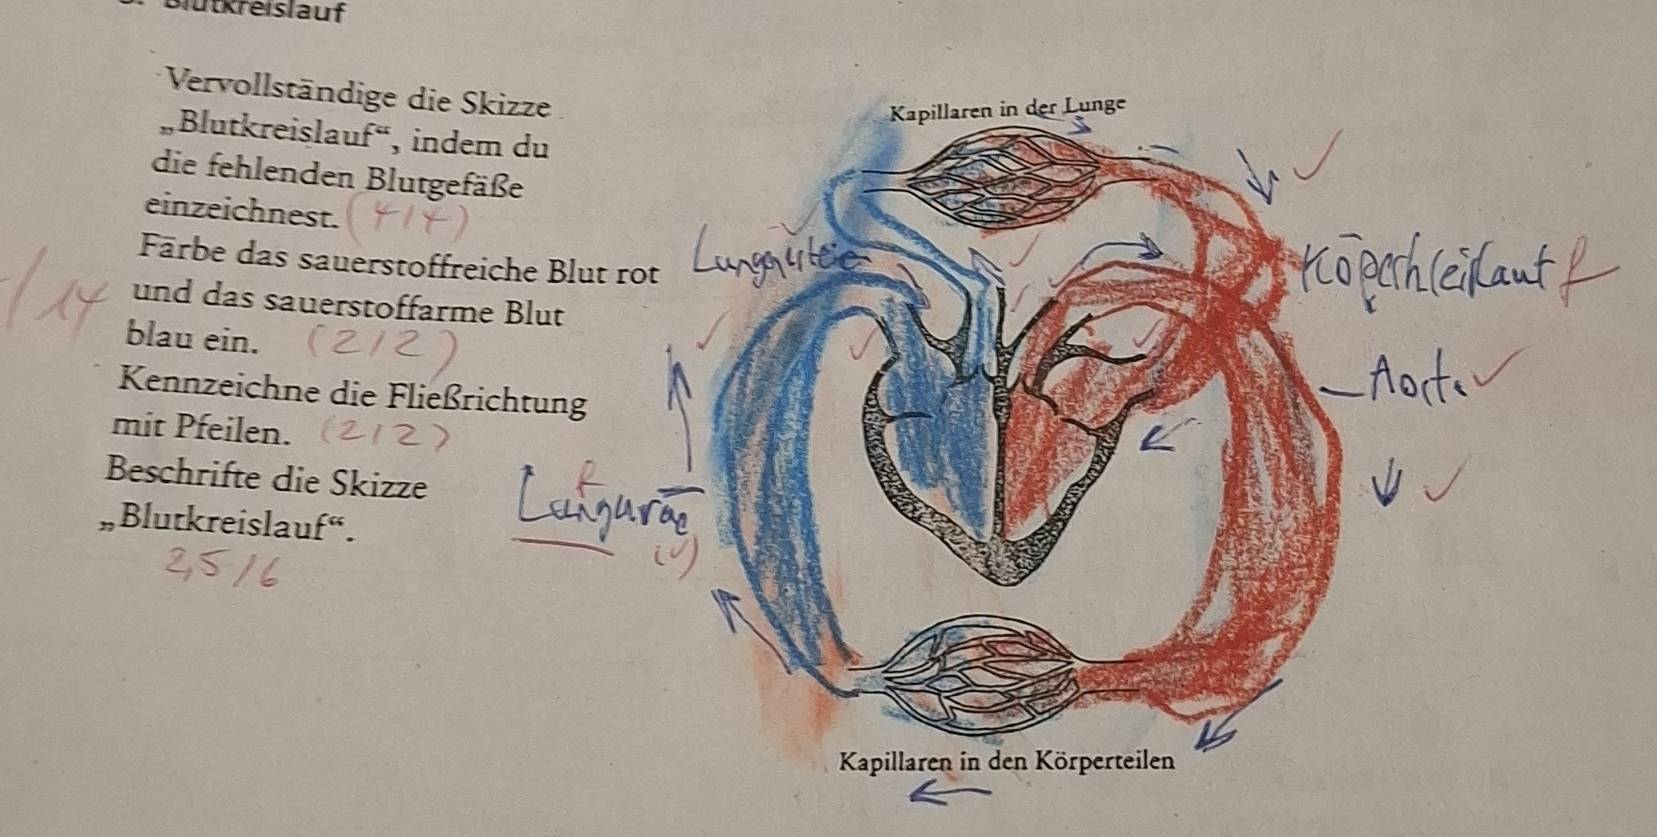 Blutkreislauf
Vervollständige die Skizze
„Blutkreislauf“, indem du
die fehlenden Blutgefäße
einzeichnest. (4/4)
Färbe das sauerstoffreiche Blut rot
und das sauerstoffarme Blut
blau ein. (2/2)
Kennzeichne die Fließrichtung
mit Pfeilen. (2/2)
Beschrifte die Skizze
„Blutkreislauf“.
2,5/6
/14
Kapillaren in der Lunge
f
Aorta
f
(✓)
Kapillaren in den Körperteilen